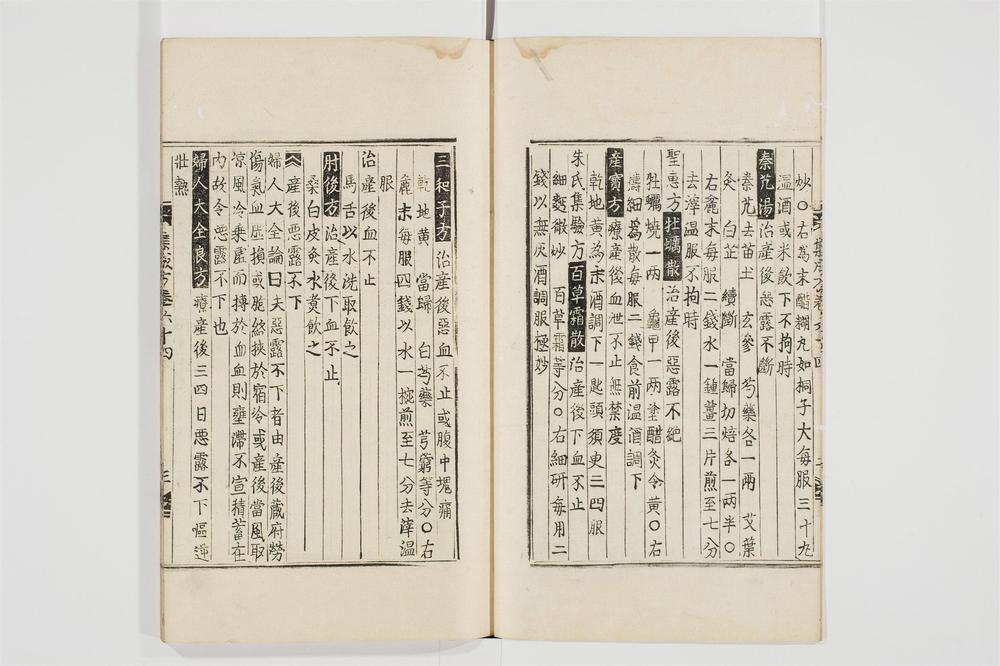 炒○右為末醋糊丸如桐子大每服三十丸
温酒或米飲下不拘時
秦艽湯治產後惡露不斷
秦艽去苗土 玄參 芍藥各一兩 艾葉
灸 白芷 續斷 當歸切焙各一兩半○
右麄末每服二錢水一鍾薑三片煎至七分
去滓温服不拘時
聖惠方牡蠣散治產後惡露不絶
牡蠣燒一兩 龜甲一兩塗醋灸令黄○右
擣細為散每服二錢食前温酒調下
產寶方療產後血泄不止無禁度
乾地黄為末酒調下一匙頭須臾三四服
朱氏集驗方百草霜散治產後下血不止
細麪微炒 百草霜等分○右細研每用二
錢以無灰酒調服極妙
三和子方治產後惡血不止或腹中塊痛
乾地黄 當歸 白芍藥 芎藭等分○右
麄末每服四錢以水一椀煎至七分去滓温
服
治產後血不止
馬舌以水洗取飲之
肘後方治產後下血不止
桑白皮灸水煑飲之
產後惡露不下
婦人大全論曰夫惡露不下者由產後藏府勞
傷氣血虚損或胞絡挾於宿冷或產後當風取
凉風冷乘虚而搏於血血則壅滯不宣積蓄在
内故令惡露不下也
婦人大全良方療產後三四日惡露不下嘔逆
壯熱